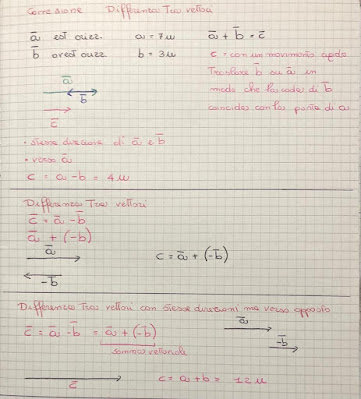 Correzione Differenza Tra vettori
a̅ est orizz. a = 7u a̅ + b̅ = c̅
b̅ ovest orizz. b = 3u c = con un movimento rigido
Traslare b̅ su a̅ in
modo che la coda di b̅
coincida con la punta di a
a̅
b̅
c̅
• stessa direzione di a̅ e b̅
• verso a̅
c = a - b = 4u
Differenza Tra vettori
c̅ = a̅ - b̅
a̅ + (-b̅)
a̅
c = a̅ + (-b̅)
-b̅
Differenza Tra vettori con stesse direzioni ma verso opposto
a̅
c̅ = a̅ - b̅ = a̅ + (-b)
-b̅
somma vettoriale
c̅
c = a + b = 12u